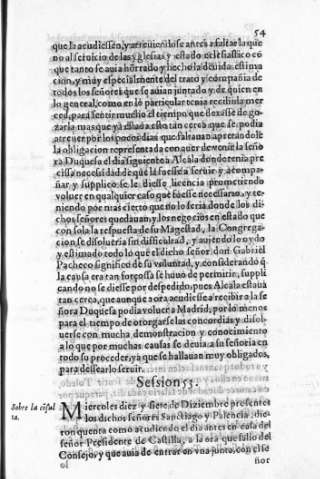 54
que la acudiessen, y atreuiendose antes a faltar la que
no al seruicio de las yglesias y estado eclesiastico có
que tanto se auia hórrado y hecho la deuida estima
cion, y muy especialmente del trato y compañia de
todos los señores que se auian juntado y de quien en
lo general, como en lo particular tenia recibida mer
ced, para sentir mucho el tiempo que dexasse de go-
zarla mas que ya estaua esto tan cerca que se podia
atreuer por los pocos dias que faltauan apretandole
la obligacion representada con que de venir la seño
ra Duquesa el dia siguiente a Alcala donde tenia pre
cissa necessidad de que la fuesse a seruir y acompa-
ñar y suplicó se le diesse licencia prometiendo
voluer en qualquier caso que fuesse necessario, y te-
niendo por mas cierto que no lo seria donde los di-
chos señores quedauan, y los negocios en estado que
con sola la respuesta de su Magestad, la Congrega-
cion se disolueria sin dificultad, y auiendolo oydo
y estimado todo lo que el dicho señor don Gabriel
Pacheco significó de su voluntad, y considerando q̃
la causa era tan forçossa se huuo de permitir, suppli
cando no se diesse por despedido, pues Alcala estaua
tan cerca, que aunque aora acudiesse a recibir a la se
ñora Duquesa podia voluer a Madrid, por lo menos
para el tiempo de otorgarse las concordias y disol-
uerse con mucha demonstracion y conocimiento
a lo que por muchas causas se deuia a su señoria en
todo su proceder, ya que se hallauan muy obligados,
para dessearlo seruir.
Session 53.
Sobre la cõsul
ta.
Miercoles diez y siete de Diziembre presentes
los dichos señores Santiago y Palencia, die-
ron quenta como acudiendo el dia antes en casa del
señor Presidente de Castilla, a la ora que salio del
Consejo y que auia de entrar en vna junta, con el se
ñor